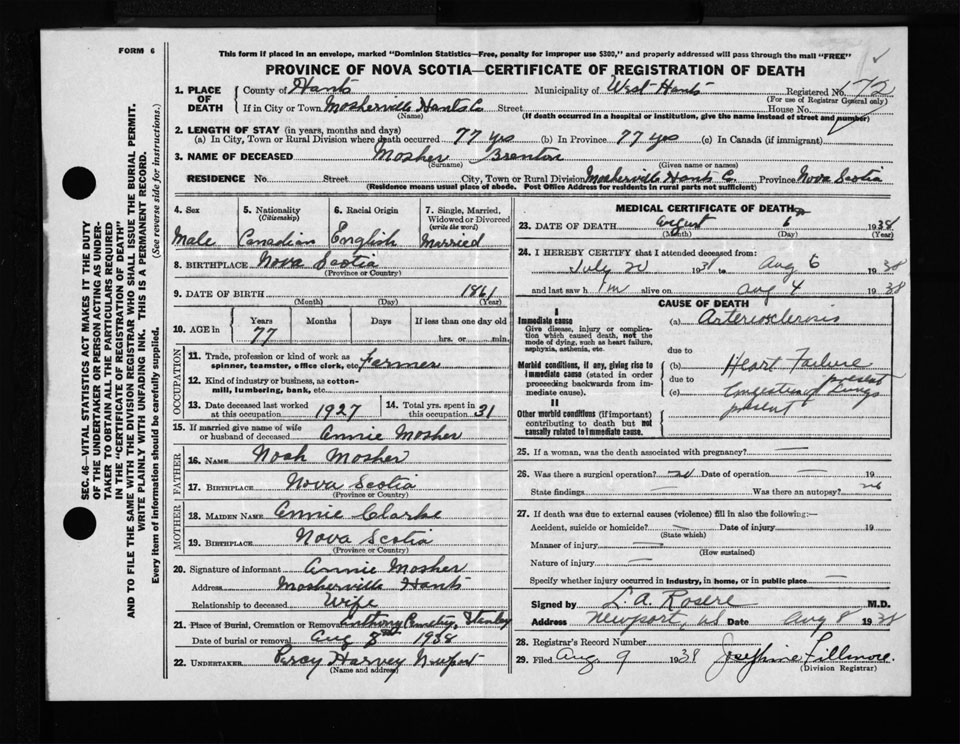 FORM 6
This form if placed in an envelope, marked "Dominion Statistics—Free, penalty for improper use $300," and properly addressed will pass through the mail "FREE"
PROVINCE OF NOVA SCOTIA—CERTIFICATE OF REGISTRATION OF DEATH
1. PLACE OF DEATH County of Hants Municipality of West Hants Registered No. 172
(For use of Registrar General only)
If in City or Town Mosherville Hants Co Street House No.
(Name) (If death occurred in a hospital or institution, give the name instead of street and number)
2. LENGTH OF STAY (in years, months and days)
(a) In City, Town or Rural Division where death occurred 77 yrs (b) In Province 77 yrs (c) In Canada (if immigrant)
3. NAME OF DECEASED Mosher Brenton
(Surname) (Given name or names)
RESIDENCE No. Street City, Town or Rural Division Mosherville Hants C. Province Nova Scotia
(Residence means usual place of abode. Post Office Address for residents in rural parts not sufficient)
4. Sex 5. Nationality (Citizenship) 6. Racial Origin 7. Single, Married, Widowed or Divorced (write the word)
Male Canadian English Married
8. BIRTHPLACE Nova Scotia
(Province or Country)
9. DATE OF BIRTH 1861
(Month) (Day) (Year)
10. AGE in Years Months Days If less than one day old
77 hrs. or min.
OCCUPATION
11. Trade, profession or kind of work as spinner, teamster, office clerk, etc. Farmer
12. Kind of industry or business, as cotton-mill, lumbering, bank, etc.
13 Date deceased last worked at this occupation 1927 14. Total yrs. spent in this occupation 31
15. If married give name of wife or husband of deceased Annie Mosher
FATHER
16. NAME Noah Mosher
17. BIRTHPLACE Nova Scotia
(Province or Country)
MOTHER
18. MAIDEN NAME Annie Clarke
19. BIRTHPLACE Nova Scotia
(Province or Country)
20. Signature of informant Annie Mosher
Address Mosherville Hants
Relationship to deceased Wife
21. Place of Burial, Cremation or Removal Anthony Cemetry, Stanley
Date of burial or removal Aug 8th 1938
22. UNDERTAKER Percy Harvey Newport
(Name and address)
MEDICAL CERTIFICATE OF DEATH
23. DATE OF DEATH August 6 1938
(Month) (Day) (Year)
24. I HEREBY CERTIFY that I attended deceased from:
July 20 1931 to Aug 6 1938
and last saw h im alive on Aug 4 1938
CAUSE OF DEATH
I
Immediate cause
Give disease, injury or complication which caused death, not the mode of dying, such as heart failure, asphyxia, asthenia, etc.
(a) Arteriosclerosis
due to
Morbid conditions, if any, giving rise to immediate cause (stated in order proceeding backwards from immediate cause).
Heart Failure
due to present
(c) Congestion of lungs
present
II
Other morbid conditions (if important) contributing to death but not causally related to immediate cause.
25. If a woman, was the death associated with pregnancy?
26. Was there a surgical operation? no Date of operation 19
State findings Was there an autopsy? no
27. If death was due to external causes (violence) fill in also the following:—
Accident, suicide or homicide? Date of injury 19
(State which)
Manner of injury
(How sustained)
Nature of injury
Specify whether injury occurred in industry, in home, or in public place
Signed by L. A. Rosere M.D.
Address Newport, NS Date Aug 8 1938
28. Registrar's Record Number
29. Filed Aug. 9 1938 Josephine Fillmore
(Division Registrar)
SEC. 46—VITAL STATISTICS ACT MAKES IT THE DUTY
OF THE UNDERTAKER OR PERSON ACTING AS UNDER-
TAKER TO OBTAIN ALL THE PARTICULARS REQUIRED
IN THE "CERTIFICATE OF REGISTRATION OF DEATH"
AND TO FILE THE SAME WITH THE DIVISION REGISTRAR WHO SHALL ISSUE THE BURIAL PERMIT.
WRITE PLAINLY WITH UNFADING INK. THIS IS A PERMANENT RECORD.
Every item of Information should be carefully supplied. (See reverse side for instructions.)